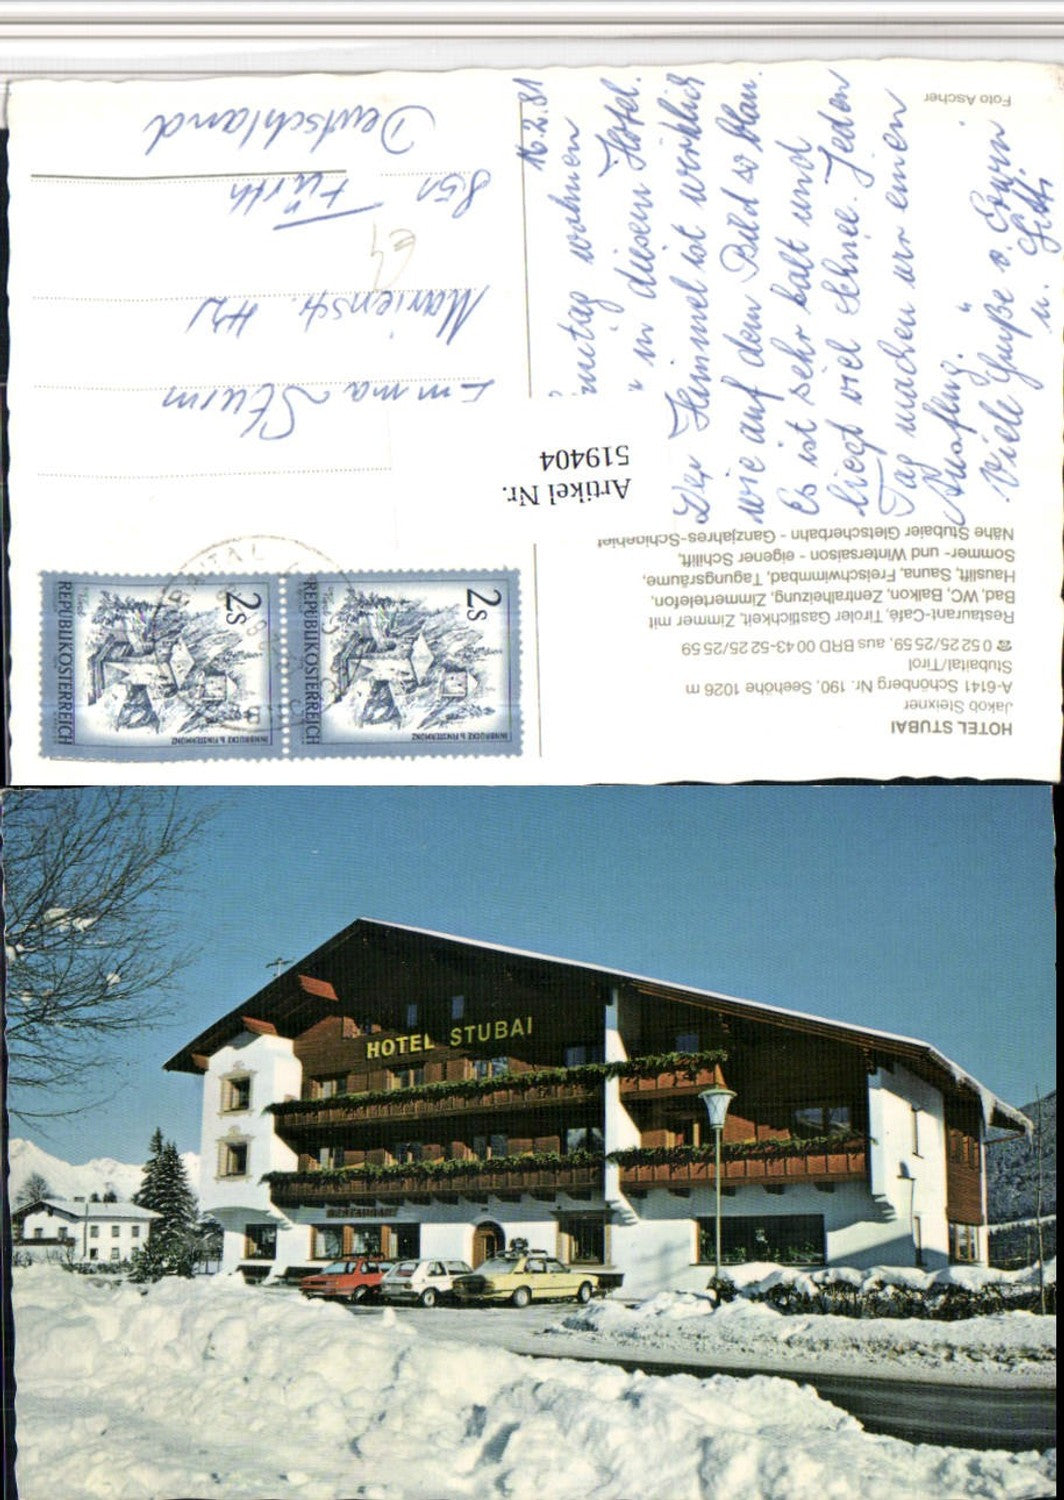 Foto Ascher
16.2.81
wohnen
" in diesem Hotel.
Der Himmel ist wirklich
wie auf dem Bild so blau.
Es ist sehr kalt und
liegt viel Schnee. Jeden
Tag machen wir einen
Ausflug.
Viele Grüße v. Erwin
u.
Emma Sturm
Marienstr. 42
851 Fürth
Deutschland
Artikel Nr.
519404
HOTEL STUBAI
Jakob Steixner
A-6141 Schönberg Nr. 190, Seehöhe 1026 m
Stubaital/Tirol
☎ 0 52 25/25 59, aus BRD 00 43-52 25/25 59
Restaurant-Café, Tiroler Gastlichkeit, Zimmer mit
Bad, WC, Balkon, Zentralheizung, Zimmertelefon,
Hauslift, Sauna, Freischwimmbad, Tagungsräume,
Sommer- und Wintersaison - eigener Schilift,
Nähe Stubaier Gletscherbahn - Ganzjahres-Schigebiet
INNBRÜCKE b. FINSTERMÜNZ
REPUBLIK ÖSTERREICH
2S
INNBRÜCKE b. FINSTERMÜNZ
REPUBLIK ÖSTERREICH
2S
HOTEL STUBAI
RESTAURANT